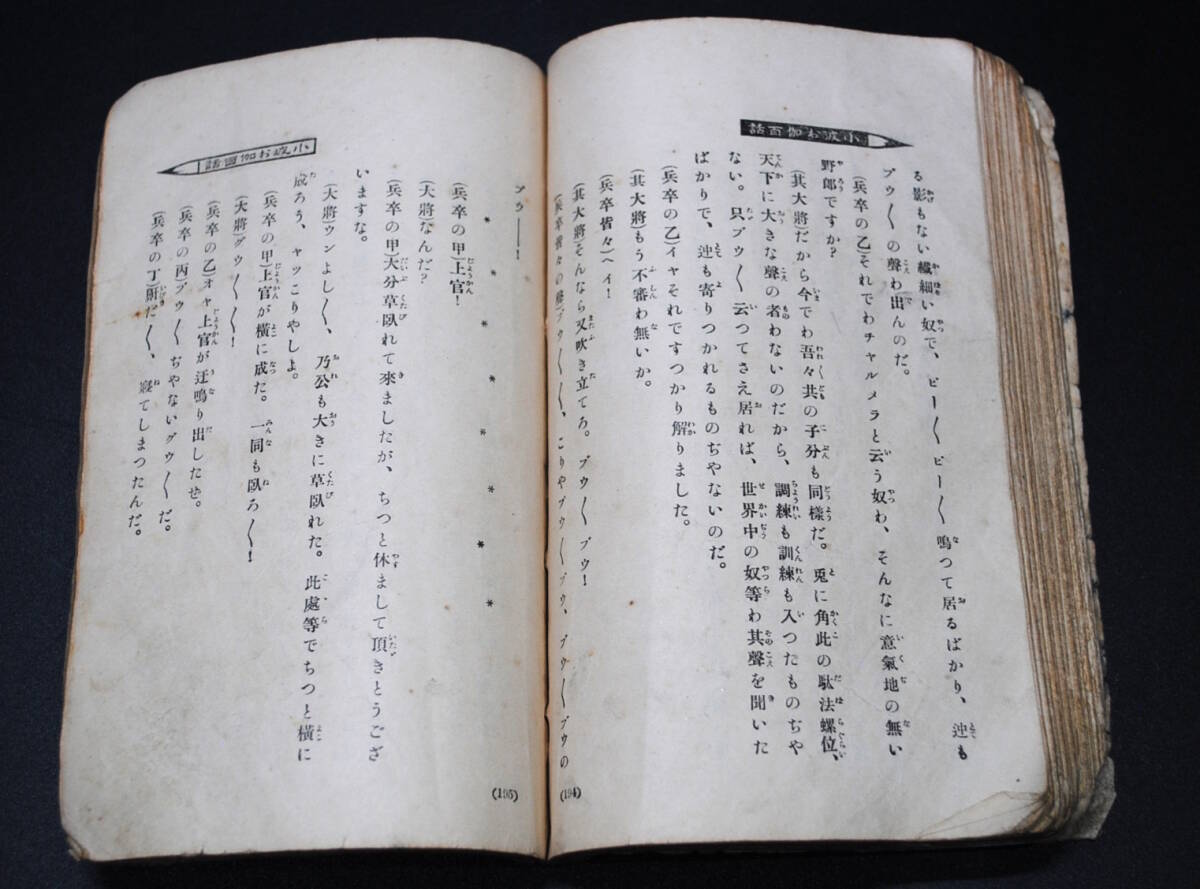 小波お伽百話
る影もない繊細い奴で、ピー〱ピー〱鳴つて居るばかり、迚も
ブウ〱の聲わ出んのだ。
(兵卒の乙)それでわチャルメラと云う奴わ、そんなに意氣地の無い
野郎ですか?
(其大將)だから今でわ吾々共の子分も同樣だ。兎に角此の駄法螺位、
天下に大きな聲の者わないのだから、調練も訓練も入つたものぢや
ない。只ブウ〱云つてさえ居れば、世界中の奴等わ其聲を聞いた
ばかりで、迚も寄りつかれるものぢやないのだ。
(兵卒の乙)イヤそれですつかり解りました。
(其大將)もう不審わ無いか。
(兵卒皆々)ヘイ!
(其大將)そんなら又吹き立てろ。ブウ〱ブウ!
(兵卒皆々の聲)ブウ〱〱、こりやブウ〱ブウ、ブウ〱ブウの
(194)
小波お伽百話
ブウ——!
* * * * * *
(兵卒の甲)上官!
(大將)なんだ?
(兵卒の甲)大分草臥れて來ましたが、ちつと休まして頂きとうござ
いますな。
(大將)ウンよし〱、乃公も大きに草臥れた。此處等でちつと橫に
成ろう、ヤッこりやしよ。
(兵卒の甲)上官が橫に成た。一同も臥ろ〱!
(大將)グウ〱〱!
(兵卒の乙)オヤ上官が迂鳴り出したぜ。
(兵卒の丙)ブウ〱ぢやないグウ〱だ。
(兵卒の丁)鼾だ〱、寢てしまつたんだ。
(195)